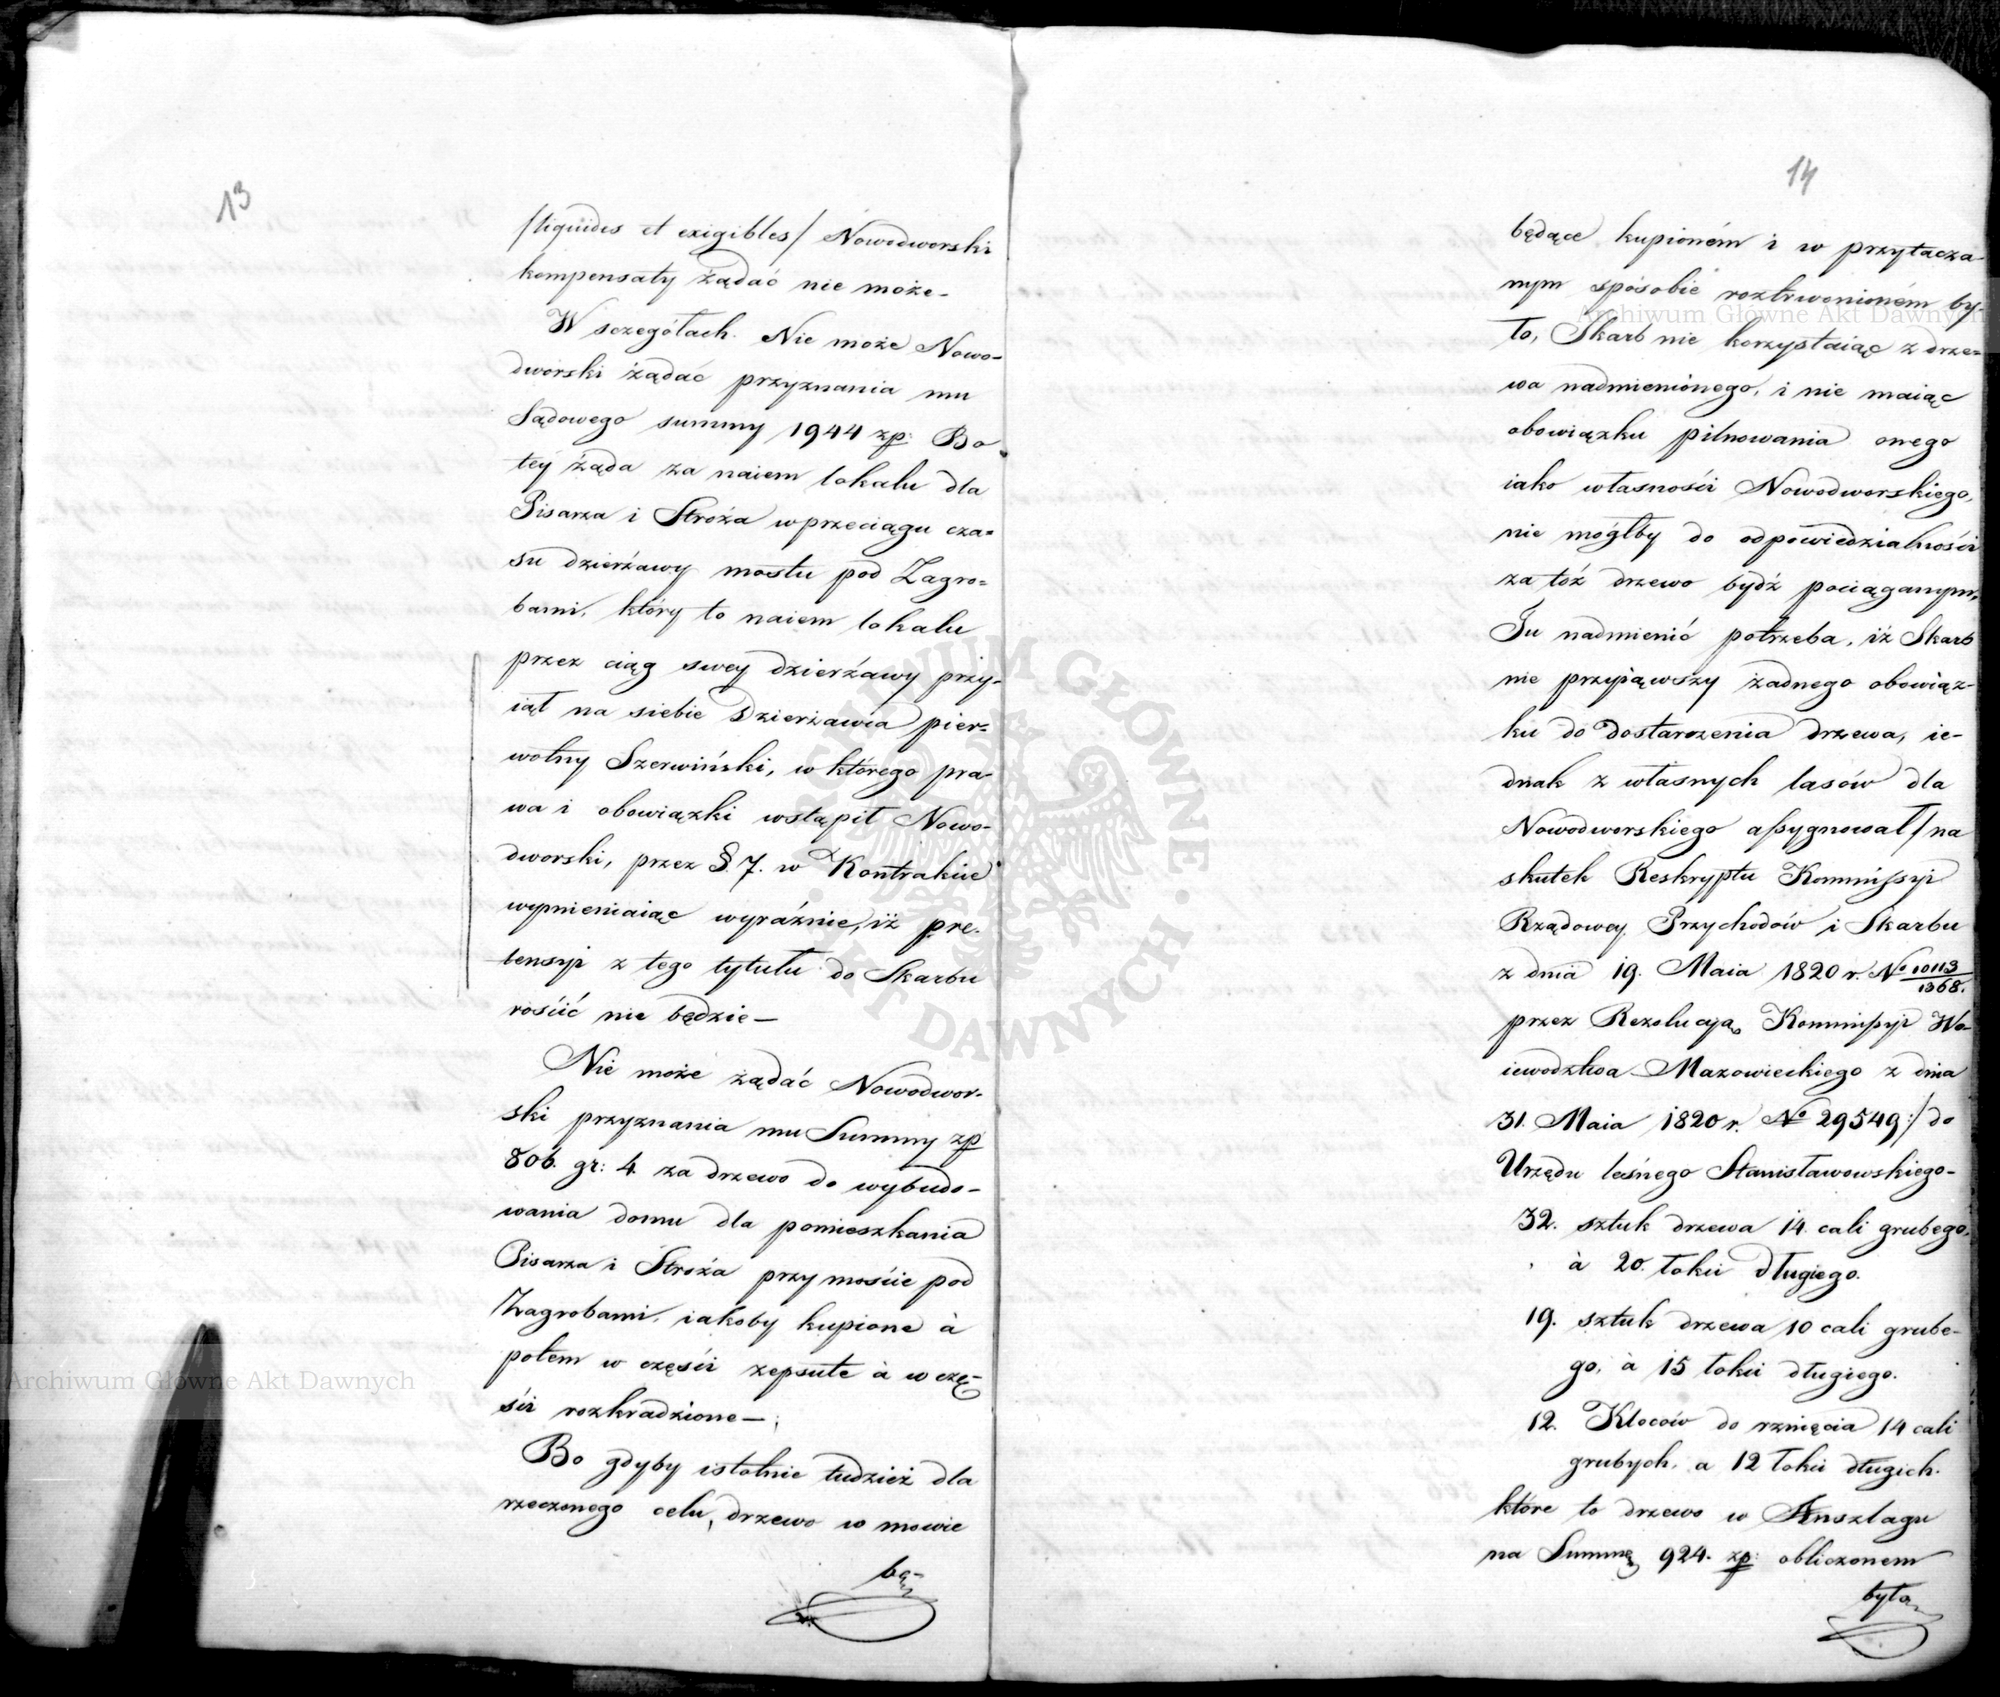 13
/liquides et exigibles/ Nowodworski
kompensaty żądać nie może_
W sczegółach. Nie może Nowo-
dworski żądać przyznania mu
Sądowego summy 1944 zp: Bo
tey żąda za naiem lokalu dla
Pisarza i Stróża w przeciągu cza=
su dzierżawy mostu pod Zagro=
bami, który to naiem lokalu
przez ciąg swey dzierżawy przy-
iął na siebie dzierżawca pier=
wotny Szerwiński, w którego pra-
wa i obowiązki wstąpił Nowo-
dworski, przez §. 7. w Kontrakcie
wymieniaiąc wyraźnie, iż pre-
tensyi z tego tytułu do Skarbu
rościć nie będzie —
Nie może żądać Nowodwor-
ski przyznania mu Summy zp
806. gr: 4. za drzewo do wybudo-
wania domu dla pomieszkania
Pisarza i Stróża przy moście pod
Zagrobami, iakoby kupione à
potem w części zepsute à w czę-
ści rozkradzione —
Bo gdyby istotnie tudzież dla
rzeczonego celu, drzewo w mowie
bę-
14
będące kupioném i w przytacza-
nym sposobie roztrwonioném by-
ło, Skarb nie korzystaiąc z drze=
wa nadmienionego, i nie maiąc
obowiązku pilnowania onego
iako własności Nowodworskiego,
nie mógłby do odpowiedzialności
za toż drzewo bydź pociąganym.
Tu nadmienić potrzeba, iż Skarb
nie przyiąwszy żadnego obowiąz-
ku do dostarczenia drzewa, ie-
dnak z własnych lasów dla
Nowodworskiego assygnował / na
skutek Reskryptu Kommissyi
Rządowey Przychodów i Skarbu
z dnia 19. Maia 1820 r. No 10113/1368.
przez Rezolucyą Kommissyi Wo-
iewodztwa Mazowieckiego z dnia
31. Maia 1820 r. No 29549:/ do
Urzędu leśnego Stanisławowskiego-
32. sztuk drzewa 14 cali grubego.
à 20. łokci długiego.
19. sztuk drzewa 10 cali grube-
go, à 15 łokci długiego.
12. Kloców do rznięcia 14 cali
grubych, a 12 łokci długich.
które to drzewo w Anszlagu
na Summę 924. zp: obliczonem
było
Archiwum Główne Akt Dawnych
Archiwum Główne Akt Dawnych
ARCHIWUM GŁÓWNE · AKT DAWNYCH ·